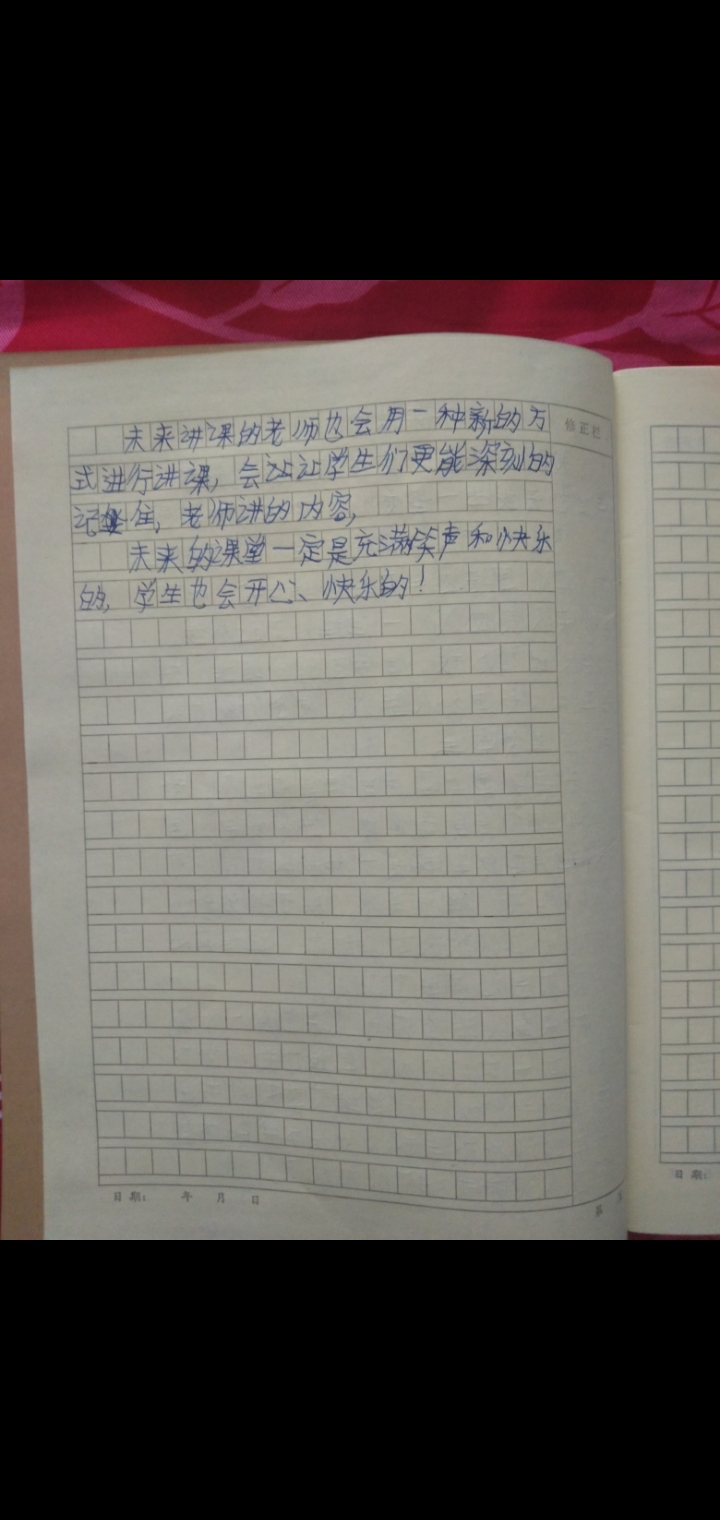 未来讲课的老师也会用一种新的方
修正栏
式进行讲课，会让让学生们更能深刻的
记住，老师讲的内容，
未来的课堂一定是充满笑声和快乐
的，学生也会开心、快乐的！
日期：　年　月　日
第
日期：